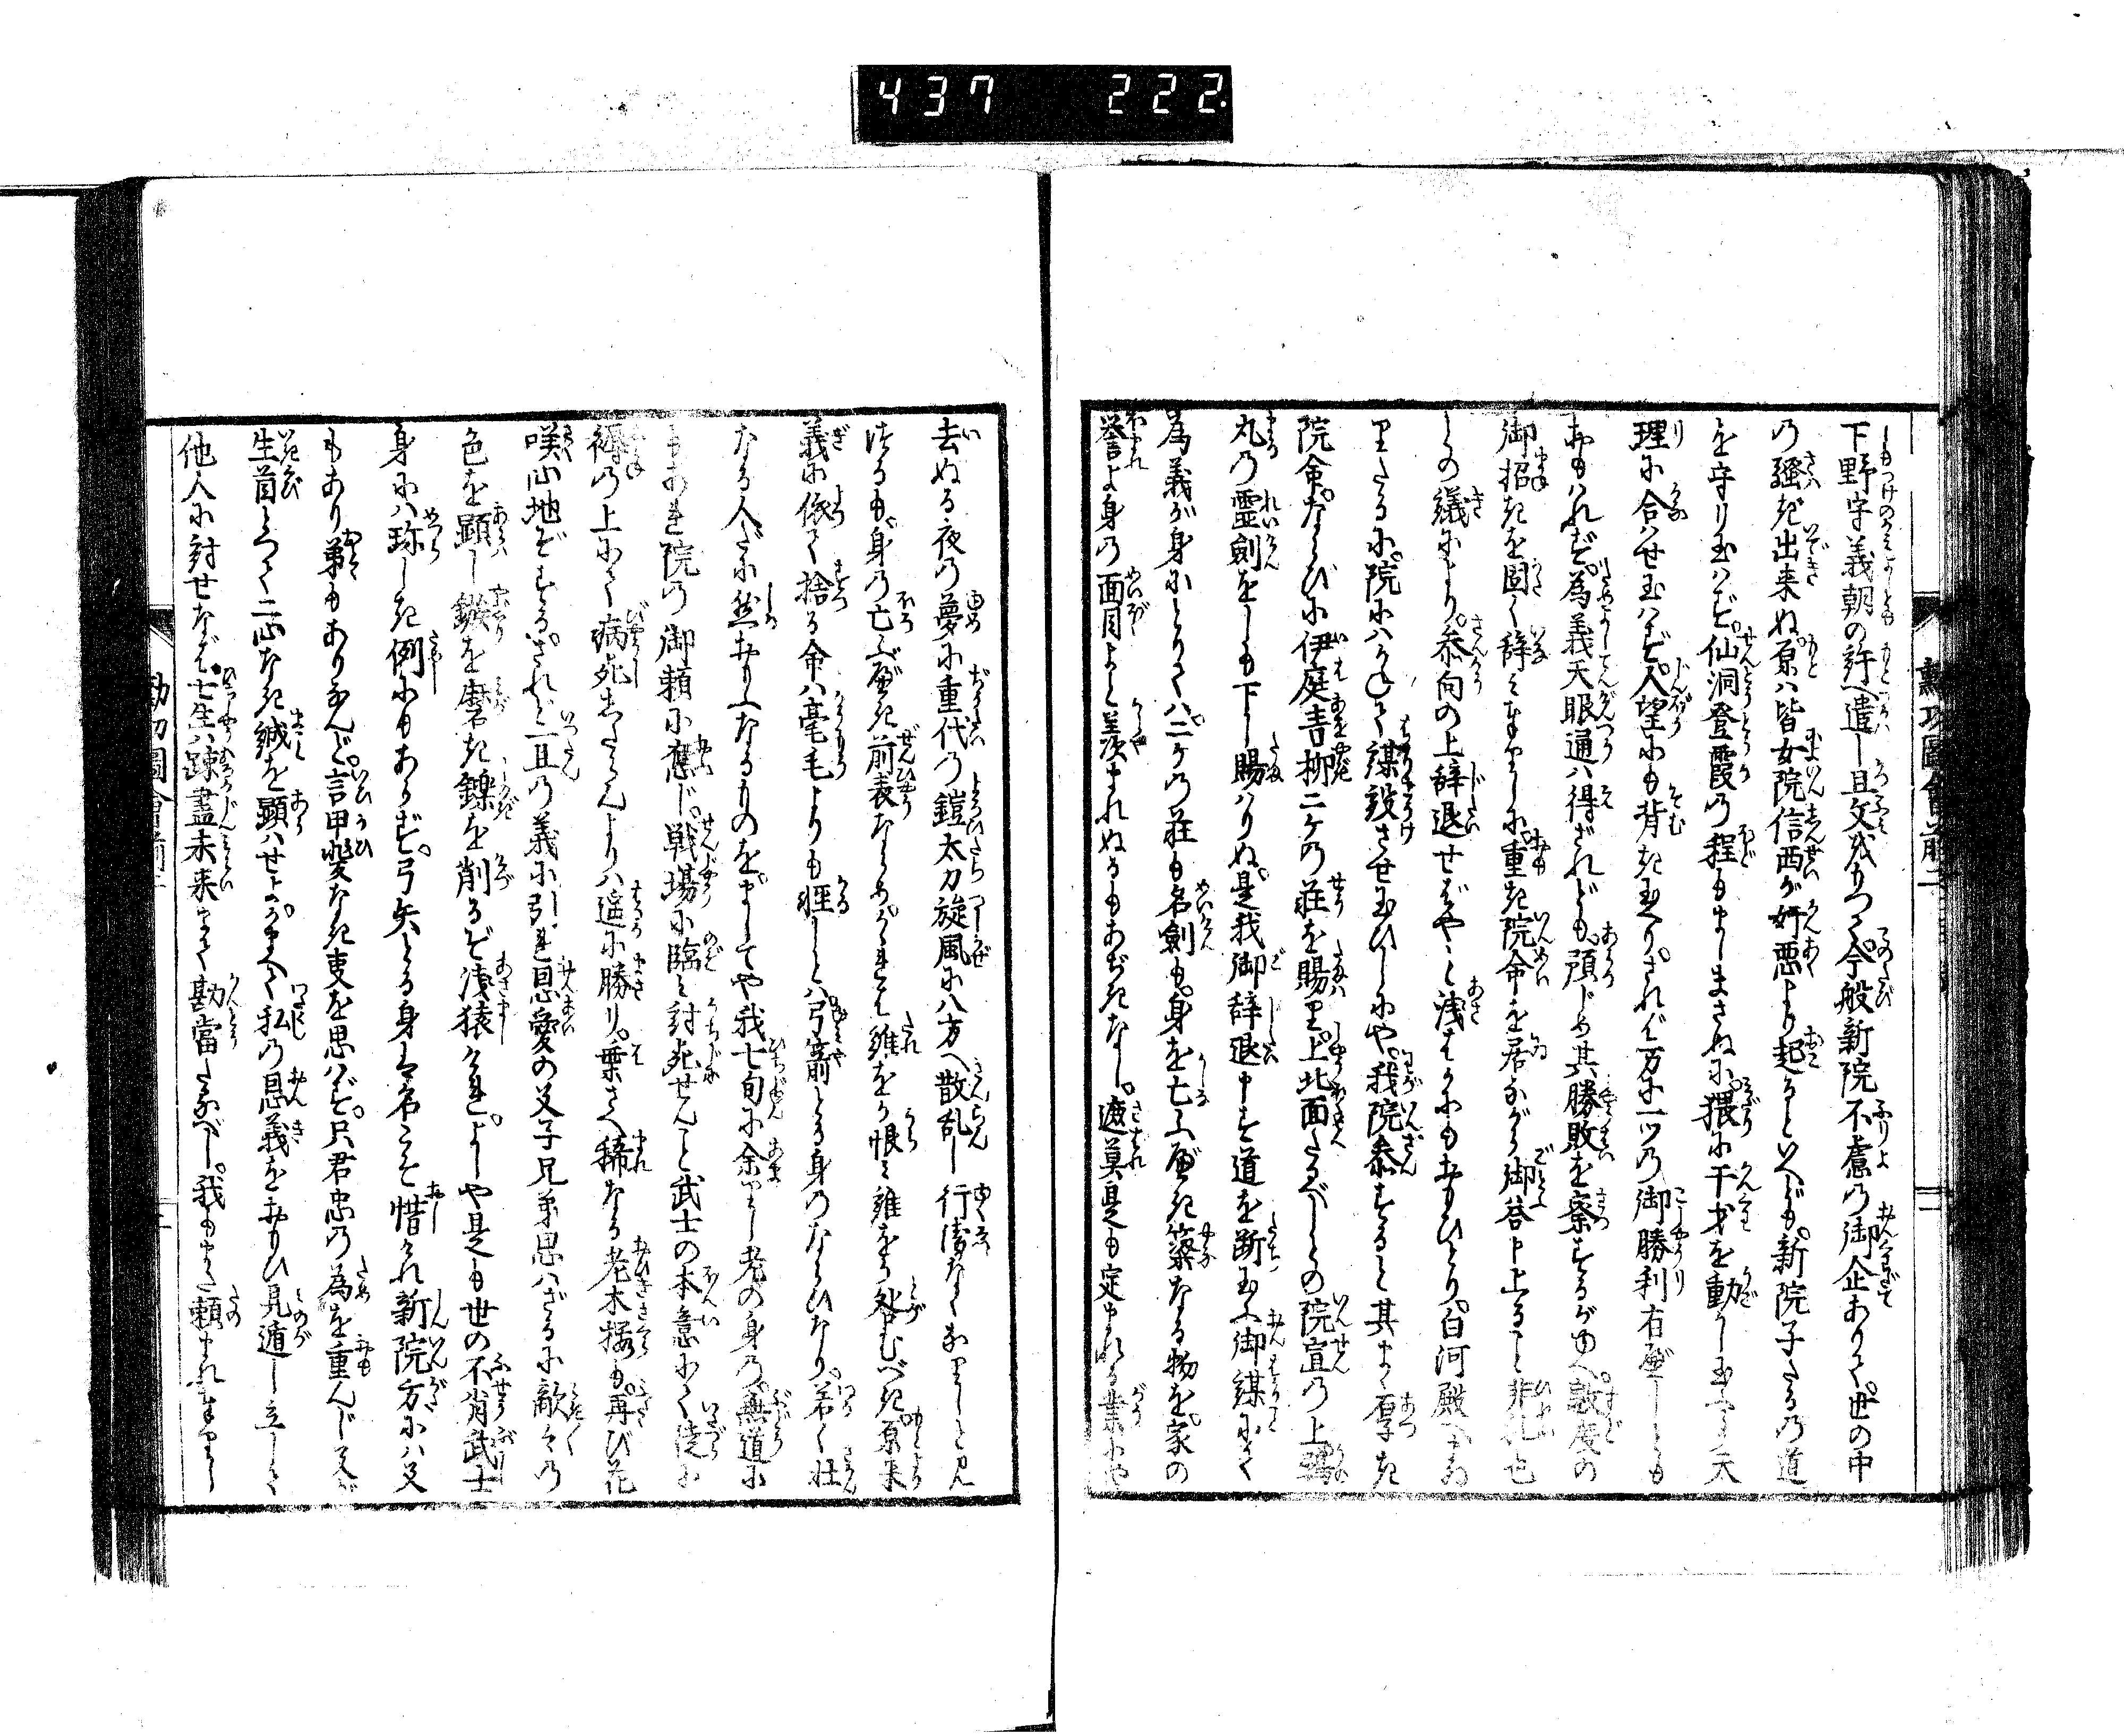 437 222.
下野守義朝の許へ遣し且文成りつゝ今般新院不慮の御企ありて世の中
の騒ぎ出来ぬ原ハ皆女院信西が奸悪より起るといへども新院子たるの道
を守り玉ハず仙洞登霞の程もましまさぬに猥に干戈を動かし玉ふこと天
理に合ハせ玉ハず人望にも背き玉へりされバ万に一ツの御勝利有べしとも
おもハれず為義天眼通ハ得ざれども預じめ其勝敗を察するがゆへ数度の
御招きを固く辞し申せしに重き院命を居ながら御答申上ること非礼也
との議により参向の上辞退せばやと浅はかにもおもひとり白河殿へ
いたるに院にハかねて謀設させ玉ひしにや我院参すると其まゝ厚き
院命ならびに伊庭青柳二ケの荘を賜り上北面たるべしとの院宣の上鵜
丸の霊剣をしも下し賜ハりぬ是我御辞退申す道を断玉ふ御謀にて
為義が身にとりてハ二ケの荘も名剣も身を亡ふべき簗なる物を家の
誉よ身の面目よと羨まれぬるもあぢきなし遮莫是も定まれる業にや
去ぬる夜の夢に重代の鎧太刀旋風に八方へ散乱し行衛なくなりしと見
つるも身の亡ぶべき前表ならめかゝれば誰をか恨み誰をか咎むべき原来
義に依て捨る命ハ毫毛よりも軽しとハ弓箭とる身のならひなり若く壮
なる人だに然おもふなるものをましてや我七旬に余りし老の身の無道に
もあれ院の御頼に応じ戦場に臨み討死せんこと武士の本意にて徒に
褥の上にて病死したらんよりハ遥に勝り葉さへ稀なる老木桜も再び花
咲心地ぞするされど一旦の義に引れ恩愛の父子兄弟思ハざるに敵々の
色を顕し鏃を磨き鎬を削るぞ浅猿けれよしや是も世の不肖武士
身にハ珍しき例にもあらず弓矢とる身は名こそ惜けれ新院方にハ父
もあり弟もありなんど言甲斐なき事を思ハず只君忠の為を重んじ父が
生首とつて二心なき誠を顕ハせよかまへて私の恩義をおもひ見遁し立しさ
他人に討せなば七生ハ疎尽未来まで勘当たるべし我もまた頼まれ奉りし